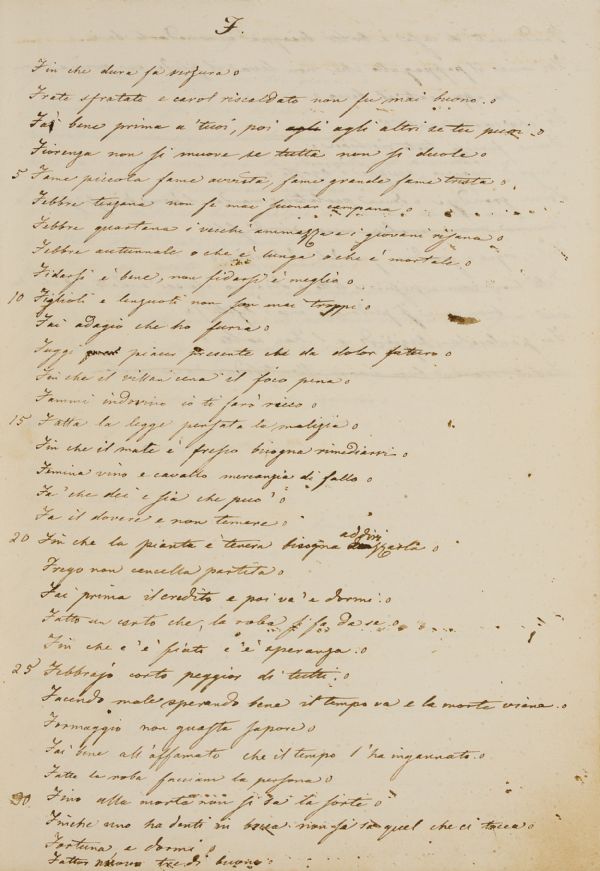 F.
Fin che dura fa verzura
Frate sfratato e cavol riscaldato non fu mai buono.
Fai bene prima a' tuoi, poi agli agli altri se tu puoi.
Fiorenza non si muove se tutta non si duole
5 Fame piccola fame avvista, fame grande fame trista
Febbre terzana non fe mai suonar campana
Febbre quartana i vecchi ammazza e i giovani risana
Febbre autunnale o che è lunga o che è mortale
Fidarsi è bene, non fidarsi è meglio
10 Figlioli e lenzuoli non son mai troppi
Fai adagio che ho furia
Fuggi piacer presente che da dolor futuro
Fin che il villan cena il foco pena
Fammi indovino io ti farò ricco
15 Fatta la legge pensata la malizia
Fin che il male è fresco bisogna rimediarvi
Femina vino e cavallo mercanzia di fallo
Fa' che dei e sia che puo'
Fa il dovere e non temere
20 Fin che la pianta è tenera bisogna addirizzarla
Frego non cancella partita
Fai prima il credito e poi va' a dormi.
Fatto un certo che, la roba si fa da se.
Fin che c'è fiato c'è speranza.
25 Febbrajo corto peggior di tutti.
Facendo male sperando bene il tempo va e la morte viene.
Formaggio non guasta sapore
Fai bene all'affamato che il tempo l'ha ingannato.
Fatto la roba facciam la persona
30 Fino alla morte non si sa la sorte
Finchè uno ha denti in bocca non sa quel che ci tocca
Fortuna, e dormi
Fattor nuovo tre dì buono